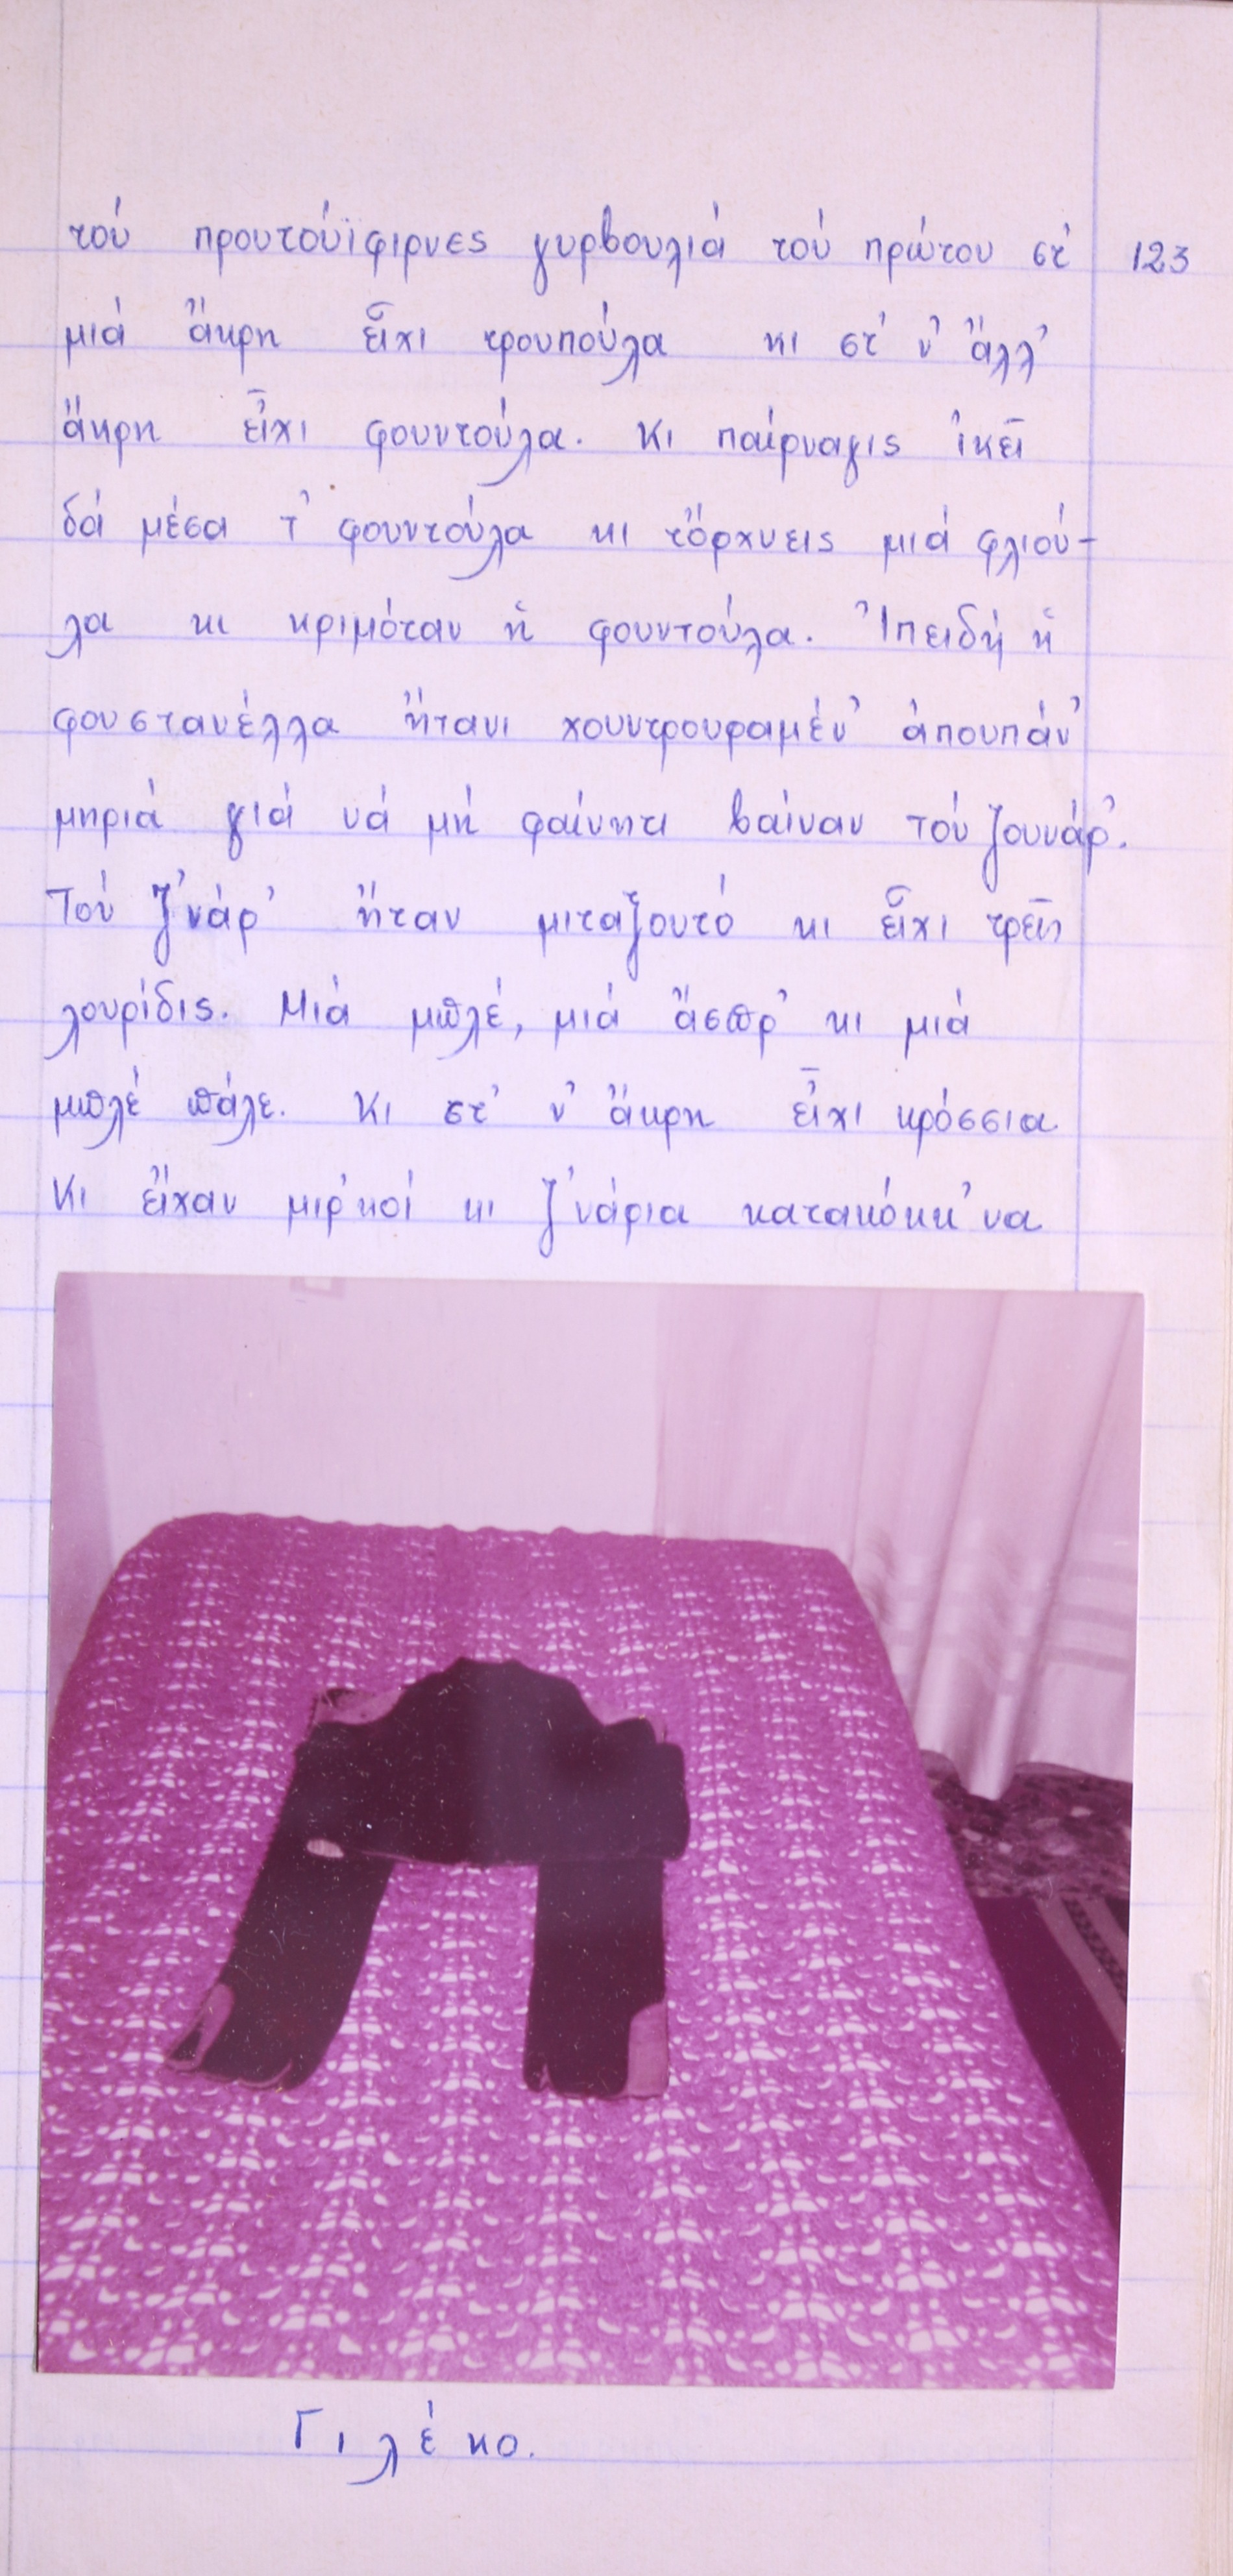 τού προυτούϊφιρνες γυρβουλιά τού πρώτου στ' 123
μιά ἄκρη εἶχι τρουπούλα κι στ' ν' ἄλλ'
ἄκρη εἶχι φουντούλα. Κι παίρναγις ἰκεῖ
δά μέσα τ' φουντούλα κι τὄρχνεις μιά φλιού-
λα κι κριμόταν ἡ φουντούλα. Ἰπειδή ἡ
φουστανέλλα ἤτανι χουντρουραμέν' ἀπουπάν'
μηριά γιά νά μή φαίνητι βαίναν τού ζουνάρ'.
Τού ζ'νάρ' ἤταν μιταξουτό κι εἶχι τρεῖς
λουρίδις. Μιά μπλέ, μιά ἄσπρ' κι μιά
μπλέ πάλε. Κι στ' ν' ἄκρη εἶχι κρόσσια
Κι εἴχαν μιρ'κοί κι ζ'νάρια κατακόκκ'να
Γιλέκο.